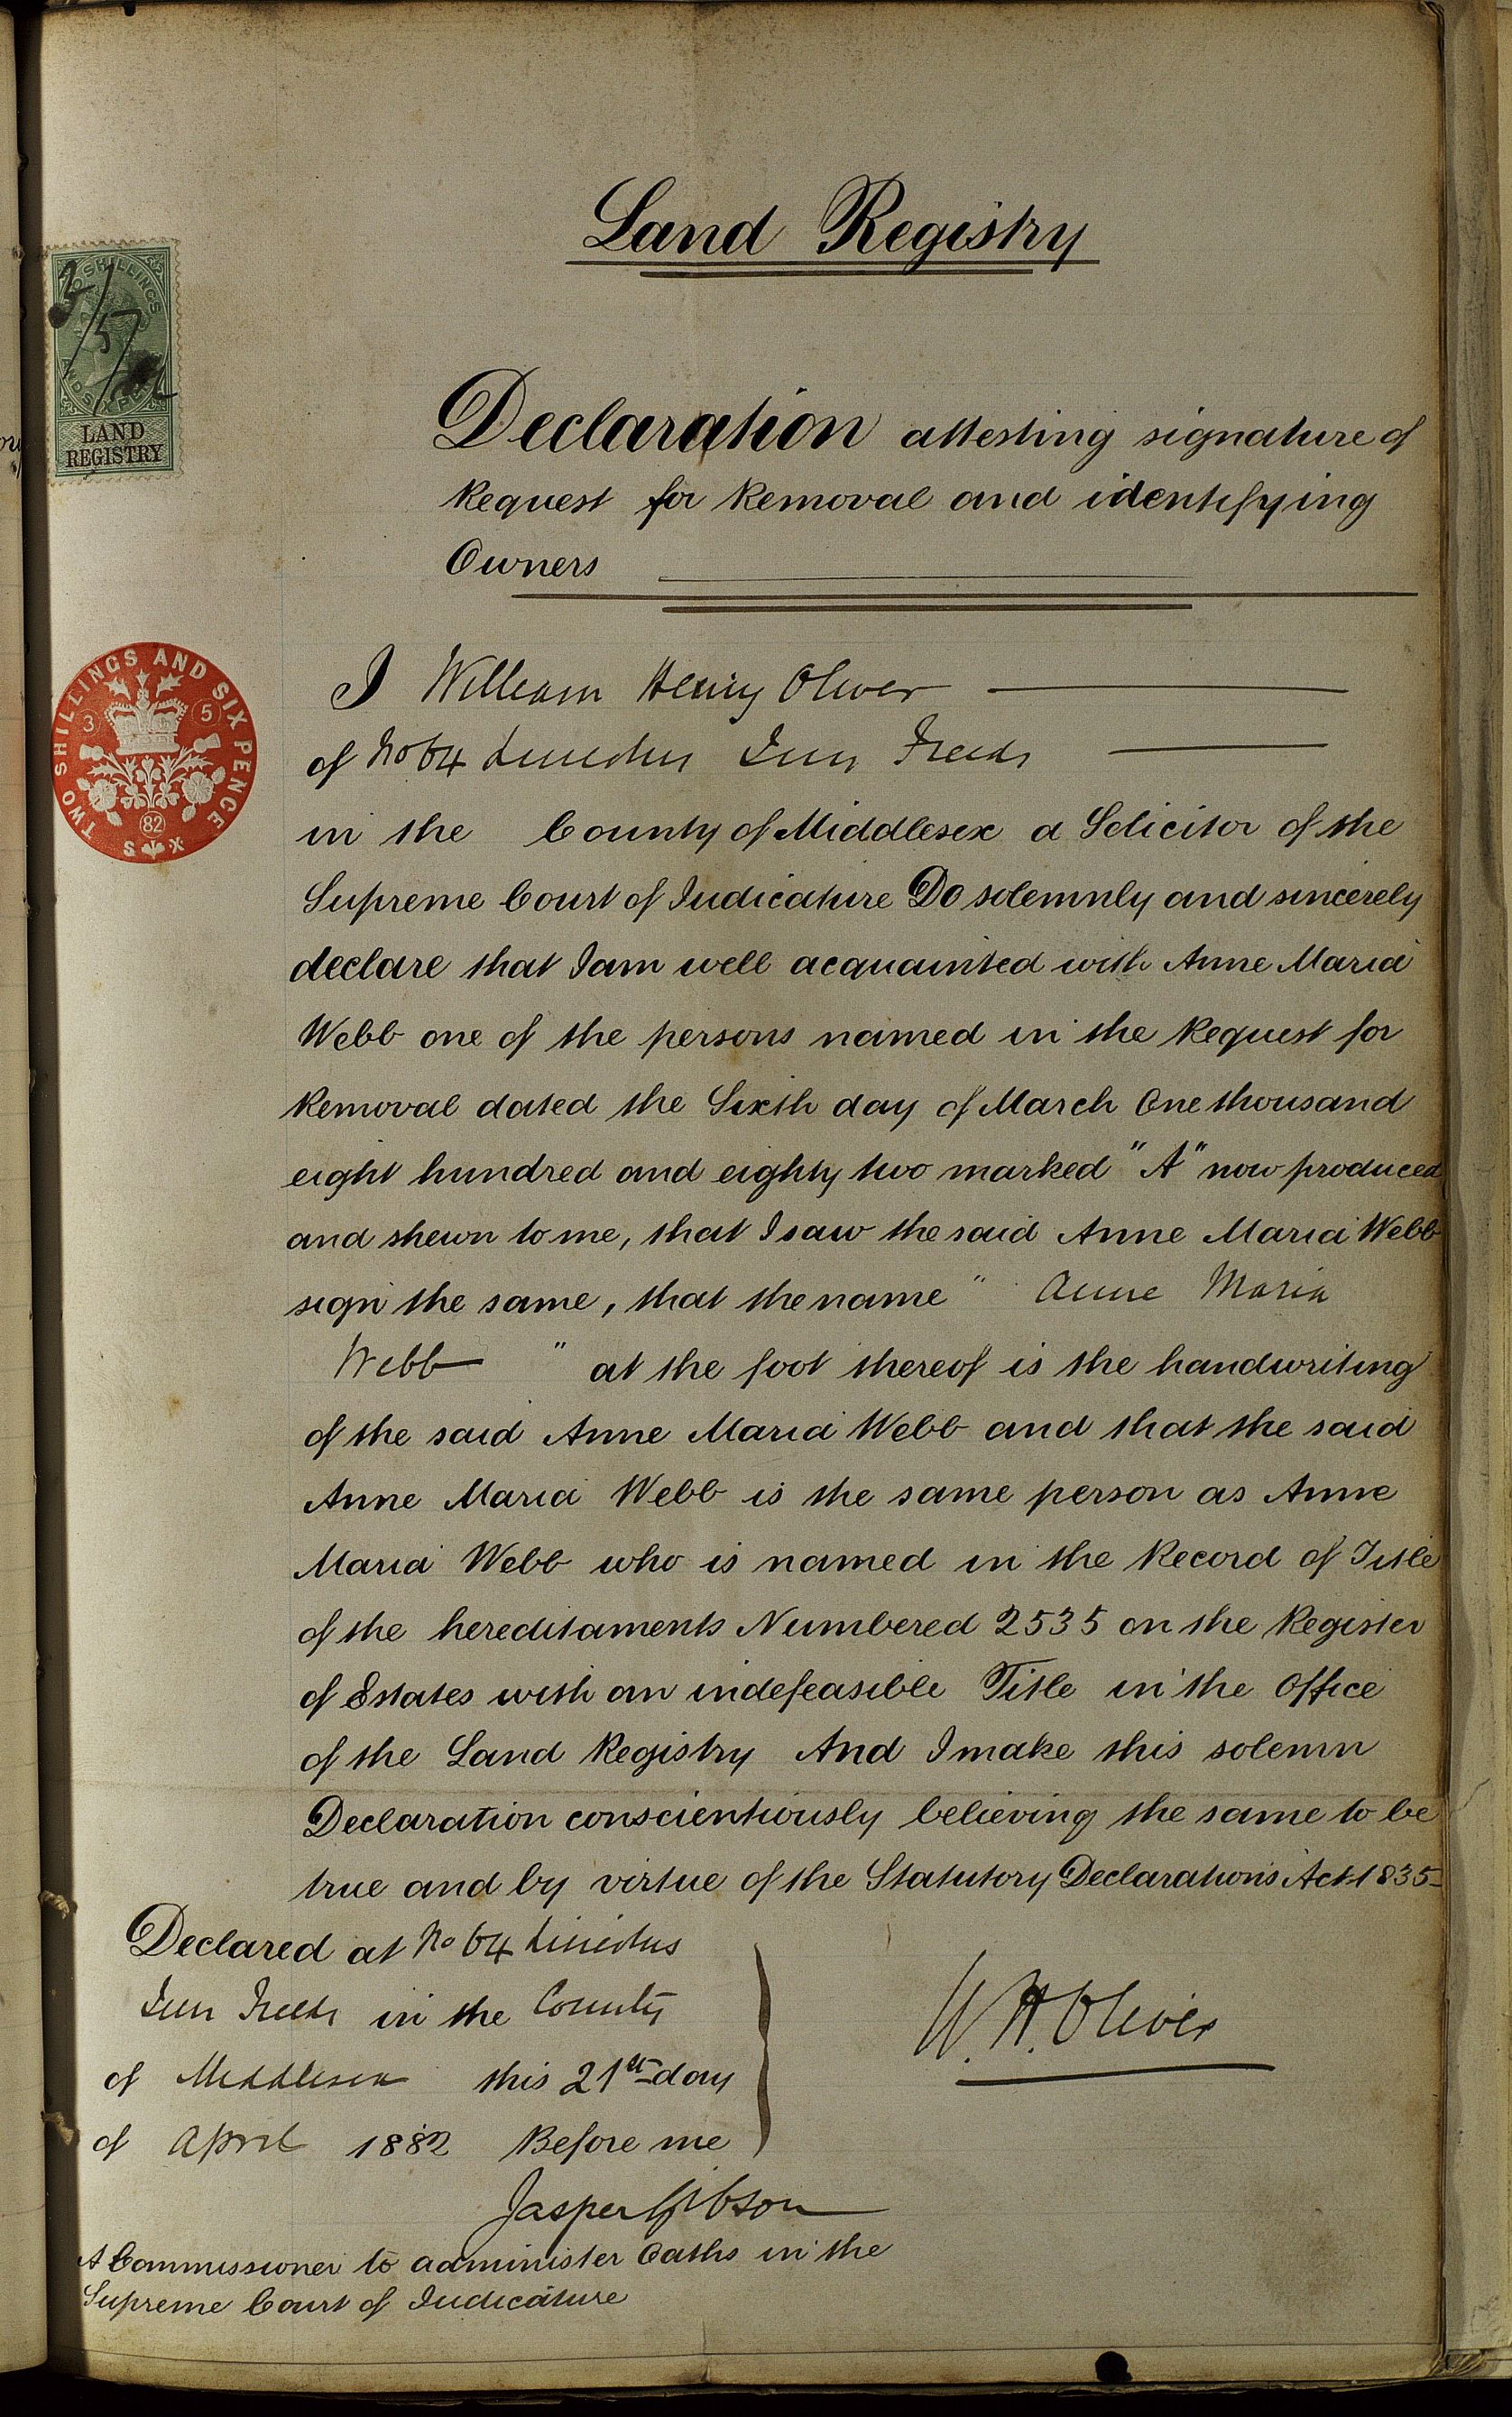 Land Registry
TWO SHILLINGS AND SIX PENCE
3/5/82
LAND
REGISTRY
Declaration attesting signature of
Request for Removal and identifying
Owners
TWO SHILLINGS AND SIX PENCE
3 5
82
S X
I William Henry Oliver
of No 64 Lincolns Inn Fields
in the County of Middlesex a Solicitor of the
Supreme Court of Judicature Do solemnly and sincerely
declare that I am well acquainted with Anne Maria
Webb one of the persons named in the Request for
Removal dated the Sixth day of March One thousand
eight hundred and eighty two marked "A" now produced
and shewn to me, that I saw the said Anne Maria Webb
sign the same, that the name " Anne Maria
Webb " at the foot thereof is the handwriting
of the said Anne Maria Webb and that the said
Anne Maria Webb is the same person as Anne
Maria Webb who is named in the Record of Title
of the hereditaments Numbered 2535 on the Register
of Estates with an indefeasible Title in the Office
of the Land Registry And I make this solemn
Declaration conscientiously believing the same to be
true and by virtue of the Statutory Declarations Act 1835
Declared at No 64 Lincolns
Inn Fields in the County
of Middlesex this 21st day
of April 1882 Before me
W. H. Oliver
Jasper Gibson
A Commissioner to administer Oaths in the
Supreme Court of Judicature